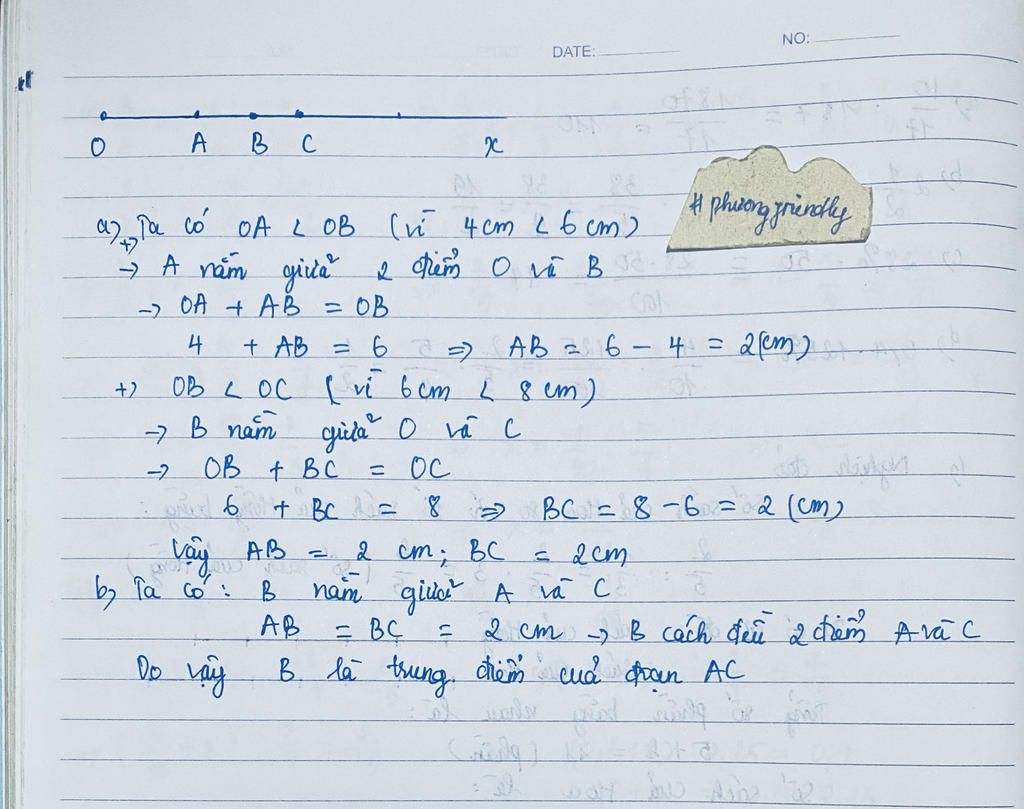 DATE:
NO:
O A B C x
#phuongfriendly
a) +) Ta có OA < OB (vì 4cm < 6cm)
→ A nằm giữa 2 điểm O và B
→ OA + AB = OB
4 + AB = 6 => AB = 6 - 4 = 2(cm)
+) OB < OC (vì 6cm < 8cm)
→ B nằm giữa O và C
→ OB + BC = OC
6 + BC = 8 => BC = 8 - 6 = 2 (cm)
Vậy AB = 2 cm; BC = 2cm
b) Ta có: B nằm giữa A và C
AB = BC = 2 cm → B cách đều 2 điểm A và C
Do vậy B là trung điểm của đoạn AC